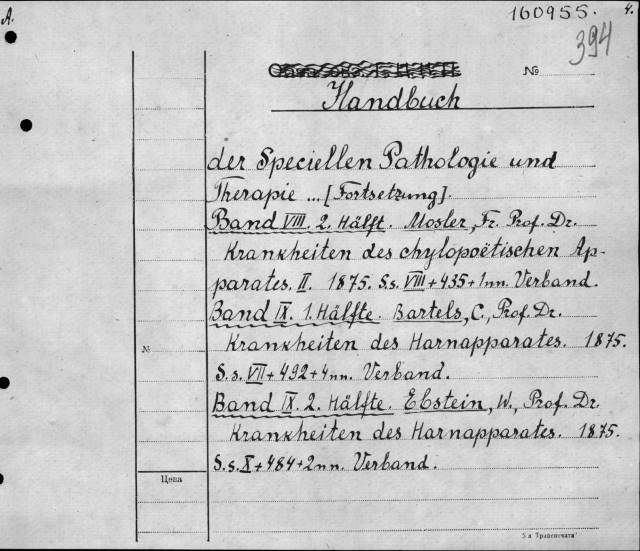 A.
160955. 4.
394
№
Handbuch
der Speciellen Pathologie und
Therapie ... [Fortsetzung].
Band VIII. 2. Hälft. Mosler, Fr. Prof. Dr.
Krankheiten des chylopoëtischen Ap-
parates. II. 1875. S.s. VIII + 435 + 1 nn. Verband.
Band IX. 1. Hälfte. Bartels, C., Prof. Dr.
Krankheiten des Harnapparates. 1875.
№
S.s. VII + 492 + 4 nn. Verband.
Band IX. 2. Hälfte. Ebstein, W., Prof. Dr.
Krankheiten des Harnapparates. 1875.
S.s. X + 484 + 2 nn. Verband.
Цена